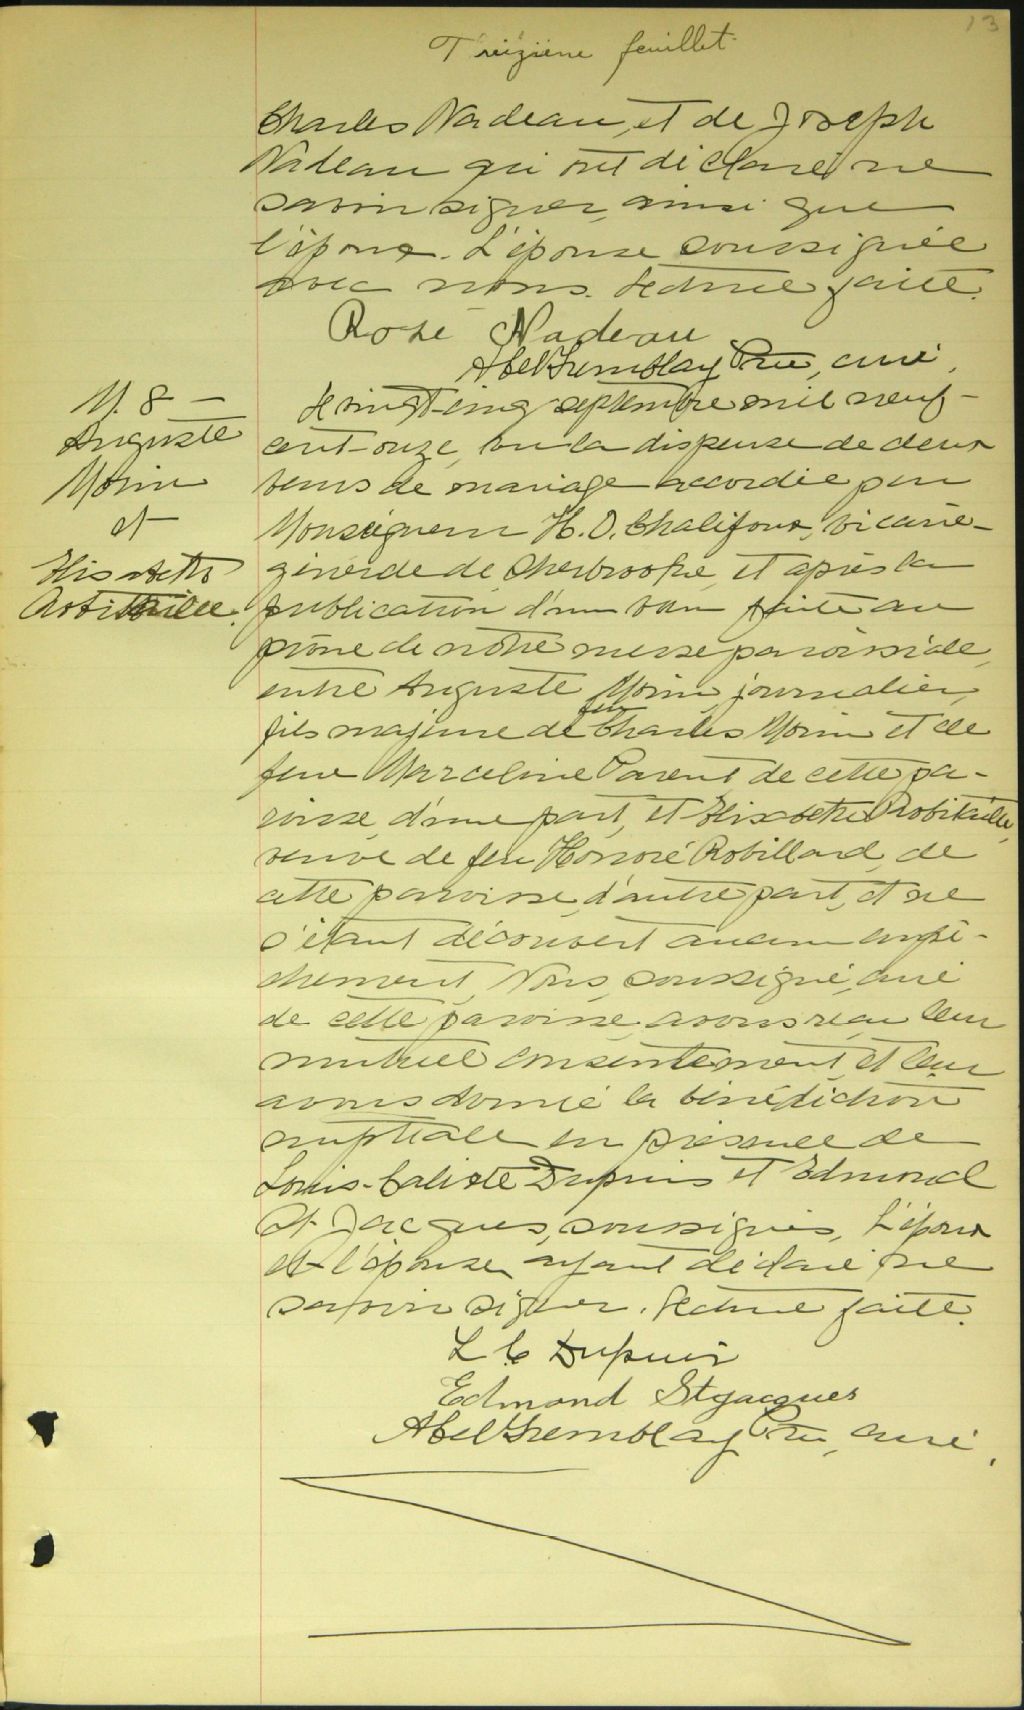 13
Treizième feuillet
Charles Nadeau, et de Joseph
Nadeau qui ont déclaré ne
savoir signer, ainsi que
l'époux. L'épouse soussignée
avec nous. Lecture faite.
Rose Nadeau
Abel Tremblay Ptre, curé,
M. 8 —
Auguste
Morin
et
Elisabeth
Robitaille.
Le vingt-cinq septembre mil neuf-
cent-onze, vu la dispense de deux
bans de mariage accordée par
Monseigneur H. O. Chalifoux, vicaire-
général de Sherbrooke, et après la
publication d'un ban faite au
prône de notre messe paroissiale,
entre Auguste Morin, journalier,
fils majeur de feu Charles Morin et de
feue Marceline Parent de cette pa-
roisse, d'une part, et Elisabeth Robitaille,
veuve de feu Honoré Robillard, de
cette paroisse, d'autre part, et ne
s'étant découvert aucun empê-
chement, Nous, soussigné, curé
de cette paroisse, avons reçu leur
mutuel consentement et leur
avons donné la bénédiction
nuptiale en présence de
Louis-Calixte Dupuis et Edmond
St-Jacques, soussignés, l'époux
et l'épouse ayant déclaré ne
savoir signer. Lecture faite.
L C Dupuis
Edmond St Jacques
Abel Tremblay Ptre, curé,